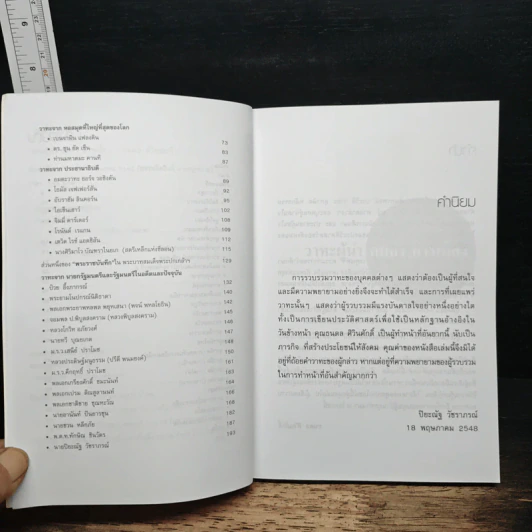 วาทะจาก หอสมุดที่ใหญ่ที่สุดของโลก
• เบนจามิน แฟลงคลิน 73
• ดร. ซุน ยัด เซ็น 83
• ท่านมหาตมะ คานธี 87
วาทะจาก ประธานาธิบดี
• ยอร์ช วอชิงตัน 89
• โธมัส เจฟเฟอร์สัน 92
• อับราฮัม ลินคอร์น
• ไอเซ็นเฮาว์
• จิมมี่ คาร์เตอร์
• โรนัลด์ เรแกน
• เสวิต
• นางศิริมาโว บันดาราไนยเก (สตรีเหล็กแห่งซีลอน)
ส่วนหนึ่งของ "พระราชบันทึก" ใน พระบาทสมเด็จพระปกเกล้าฯ
วาทะจาก นายกรัฐมนตรีและรัฐมนตรีในอดีตและปัจจุบัน
• ป๋วย อึ๊งภากรณ์
• พระยามโนปกรณ์นิติธาดา
• พลเอกพระยาพหลพลพยุหเสนา (พจน์ พหลโยธิน)
• จอมพล ป.พิบูลสงคราม (หลวงพิบูลสงคราม)
• หลวงโกวิท อภัยวงศ์
• นายทวี บุณยเกต
• ม.ร.ว.เสนีย์ ปราโมช
• หลวงประดิษฐ์มนูธรรม (ปรีดี พนมยงค์)
• ม.ร.ว.คึกฤทธิ์ ปราโมช
• พลเอกเกรียงศักดิ์ ชมะนันทน์
• พลเอกเปรม ติณสูลานนท์
• พลเอกชาติชาย ชุณหะวัณ
• นายอานันท์ ปันยารชุน
• นายชวน หลีกภัย
• พ.ต.ท.ทักษิณ ชินวัตร
• นายปิยะณัฐ วัชราภรณ์
คำนิยม
การรวบรวมวาทะของบุคคลต่างๆ แสดงว่าต้องเป็นผู้ที่สนใจ
และมีความพยายามอย่างยิ่งจึงจะทำได้สำเร็จ และการที่เผยแพร่
วาทะนั้นๆ แสดงว่าผู้รวบรวมมีแรงบันดาลใจอย่างหนึ่งอย่างใด
ทั้งเป็นการเขียนประวัติศาสตร์เพื่อใช้เป็นหลักฐานอ้างอิงใน
วันข้างหน้า คุณธนดล ศิวินศักดิ์ เป็นผู้ทำหน้าที่อันยากนี้ นับเป็น
ภารกิจ ที่สร้างประโยชน์ให้สังคม คุณค่าของหนังสือเล่มนี้จึงมิได้
อยู่ที่ถ้อยคำวาทะของผู้กล่าว หากแต่อยู่ที่ความพยายามของผู้รวบรวม
ในการทำหน้าที่อันสำคัญมากกว่า
ปิยะณัฐ วัชราภรณ์
18 พฤษภาคม 2548